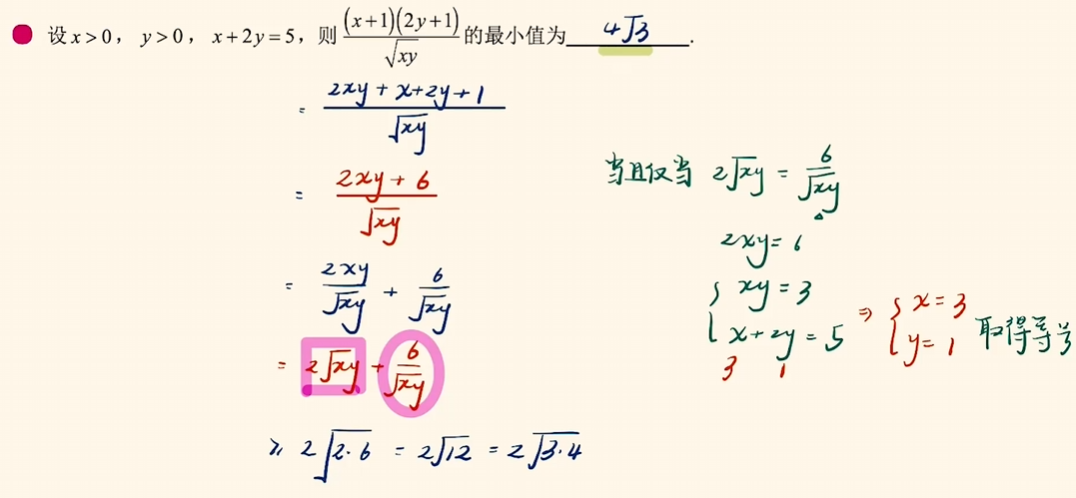 设 x > 0， y > 0， x + 2y = 5，则 (x+1)(2y+1)/√xy 的最小值为 4√3 .
= (2xy + x+2y+1)/√xy
= (2xy + 6)/√xy
= 2xy/√xy + 6/√xy
= 2√xy + 6/√xy
≥ 2√2·6 = 2√12 = 2√3·4
当且仅当 2√xy = 6/√xy
2xy = 6
{ xy = 3
x + 2y = 5
3 1
⇒ { x = 3
y = 1 取得等号